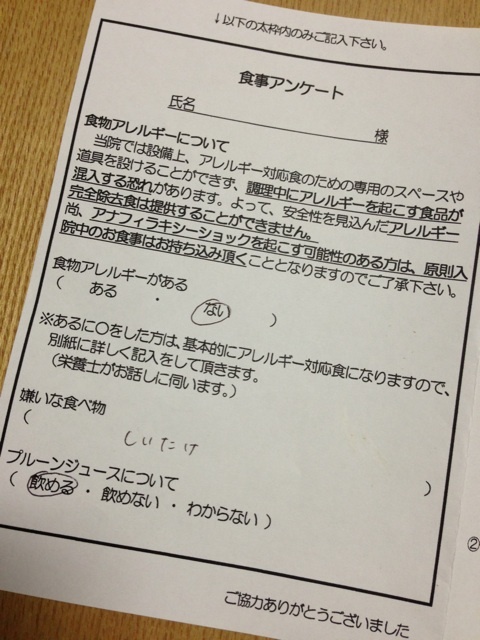 ↓以下の太枠内のみご記入下さい。
食事アンケート
氏名 様
食物アレルギーについて
当院では設備上、アレルギー対応食のための専用のスペースや
道具を設けることができず、調理中にアレルギーを起こす食品が
混入する恐れがあります。よって、安全性を見込んだアレルギー
完全除去食は提供することができません。
尚、アナフィラキシーショックを起こす可能性のある方は、原則入
院中のお食事はお持ち込み頂くこととなりますのでご了承下さい。
食物アレルギーがある
( ある ・ ない )
※あるに○をした方は、基本的にアレルギー対応食になりますので、
別紙に詳しく記入をして頂きます。
(栄養士がお話しに伺います。)
嫌いな食べ物
( しいたけ )
プルーンジュースについて
( 飲める ・ 飲めない ・ わからない )
②
ご協力ありがとうございました